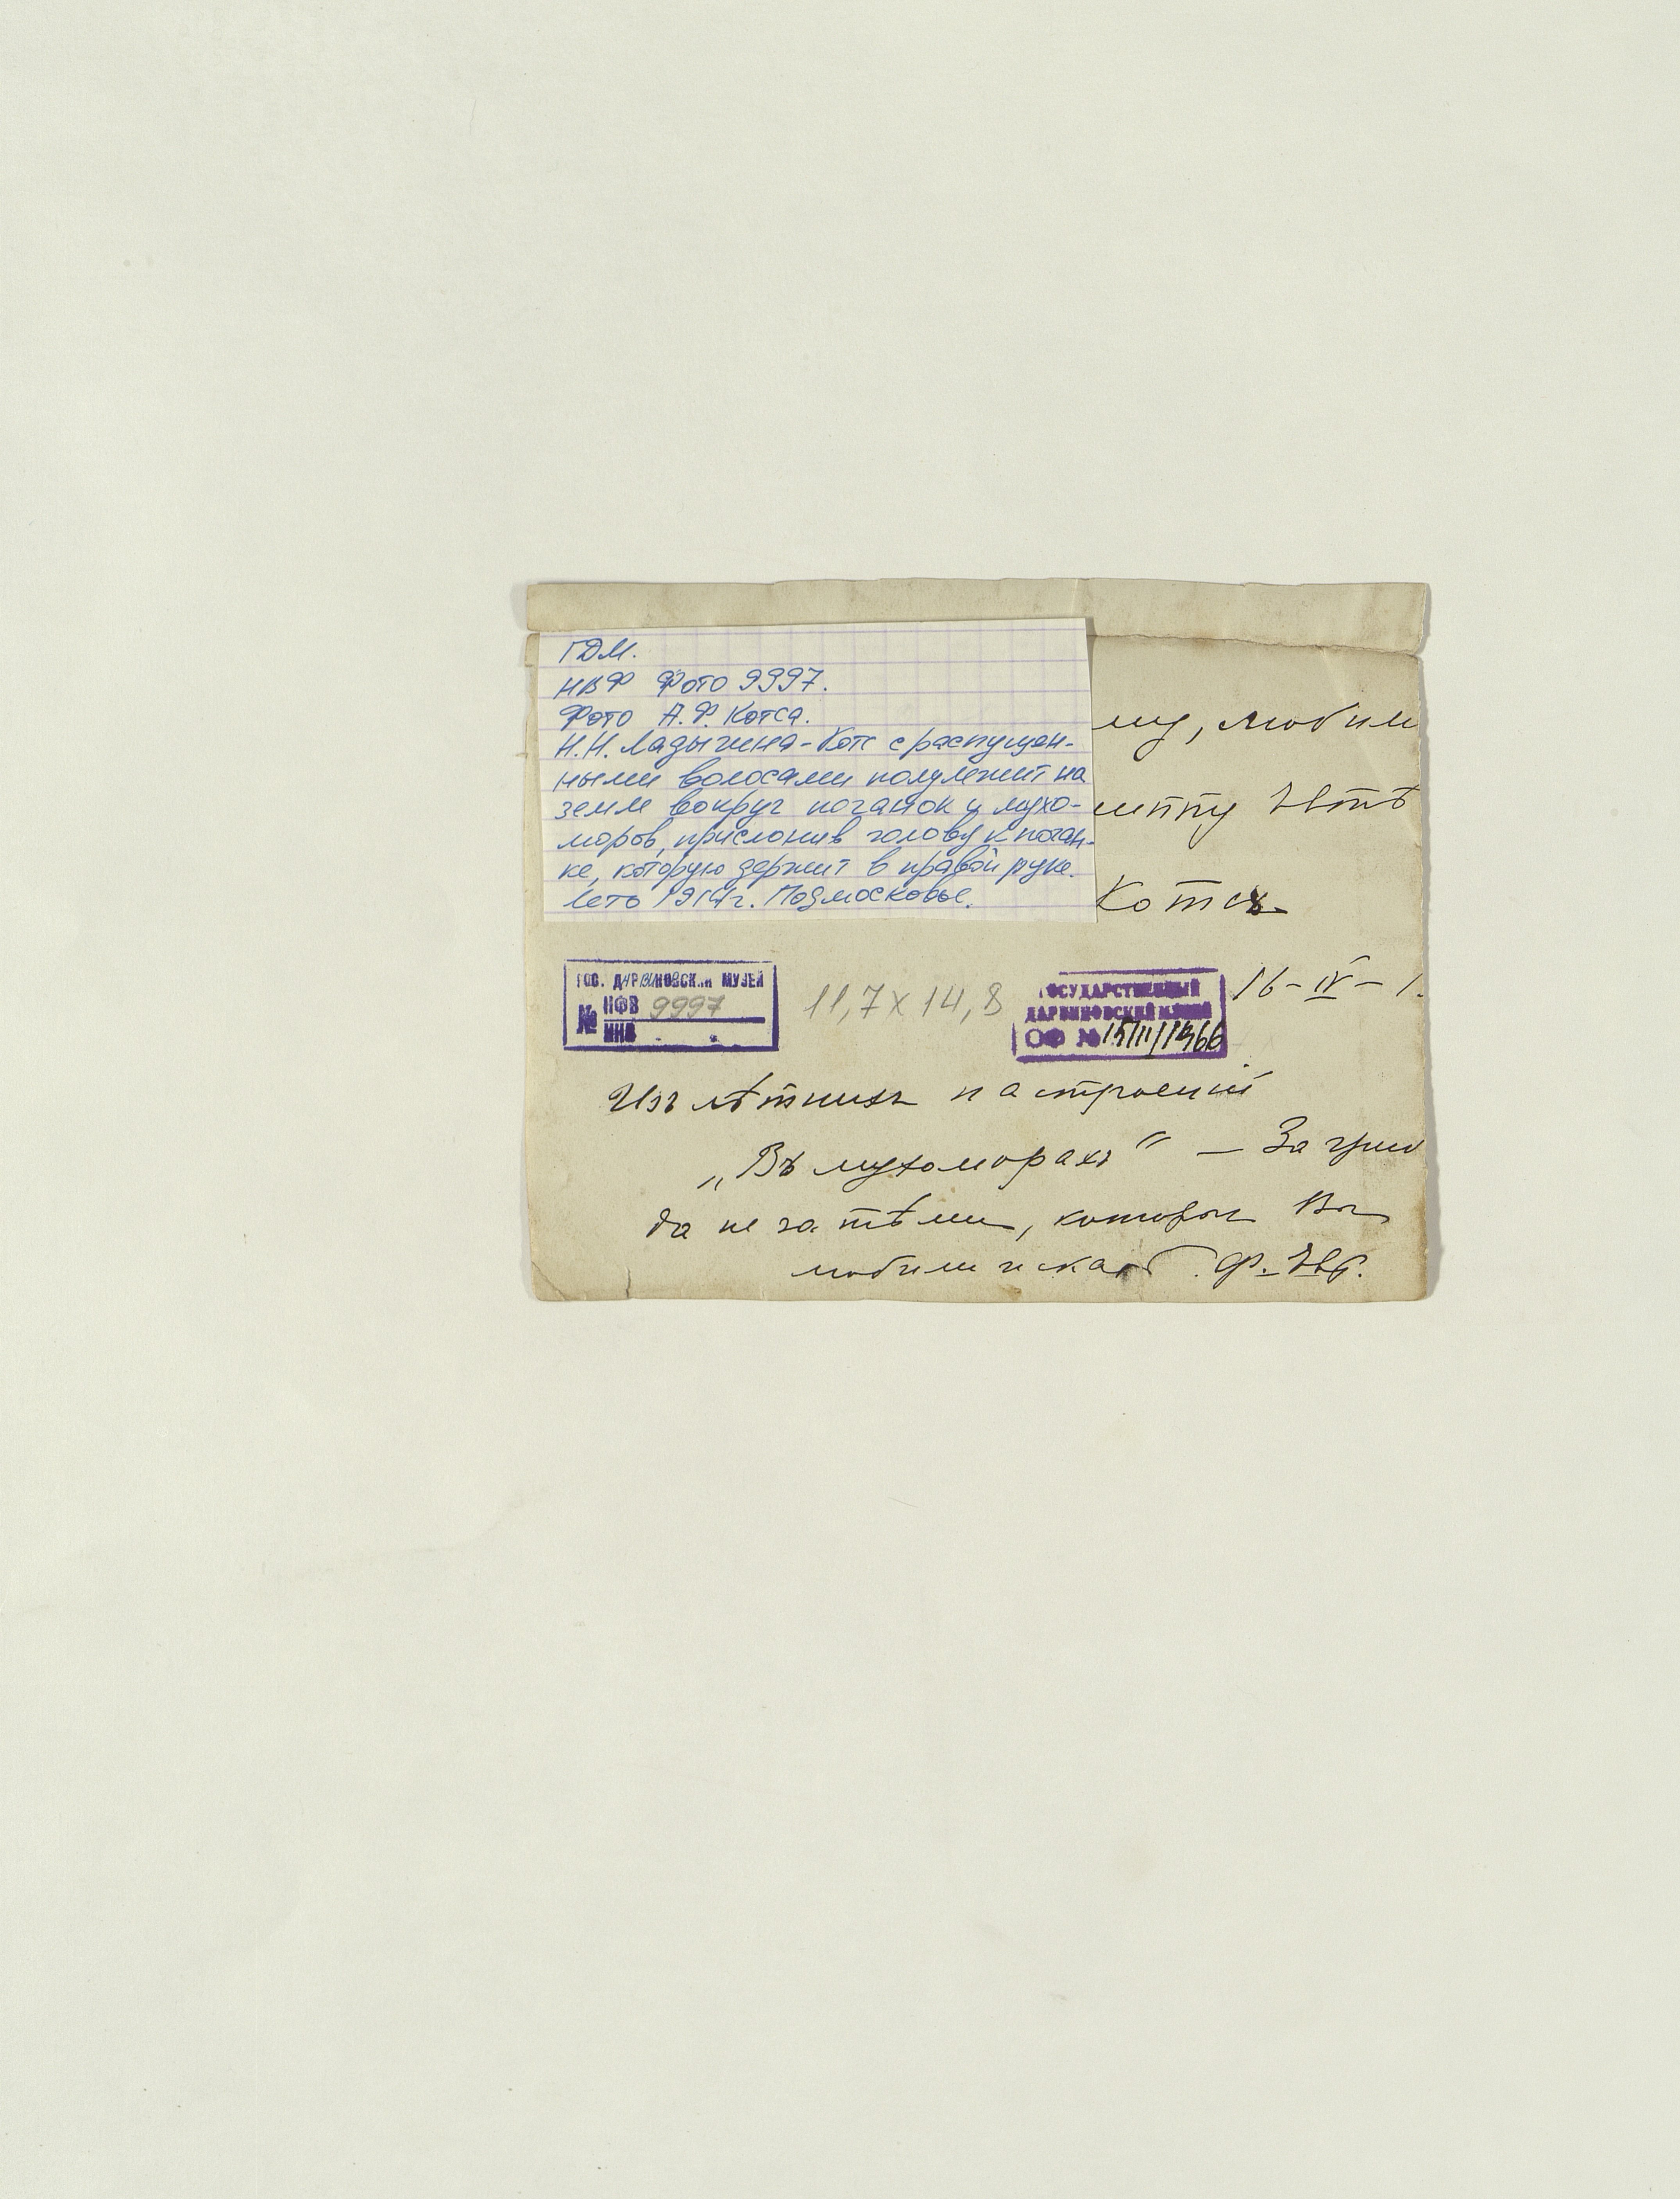 ГДМ.
НВФ Фото 9997.
Фото А.Ф. Котса.
Н.Н. Ладыгина-Котс с распущен-
ными волосами полулежит на
земле вокруг поганок и мухо-
моров, прислонив голову к поган-
ке, которую держит в правой руке.
Лето 1914г. Подмосковье.
му, любим
Котсъ
16-IV-1
ГОС. ДАРВИНОВСКИЙ МУЗЕЙ
№ НФВ 9997
ИНВ
11,7 x 14,8
ГОСУДАРСТВЕННЫЙ
ДАРВИНОВСКИЙ МУЗЕЙ
ОФ №
Изъ лѣтнихъ настроений
„Въ мухоморахъ" — За гриб
да не за тѣми, которые Вы
любили искать.